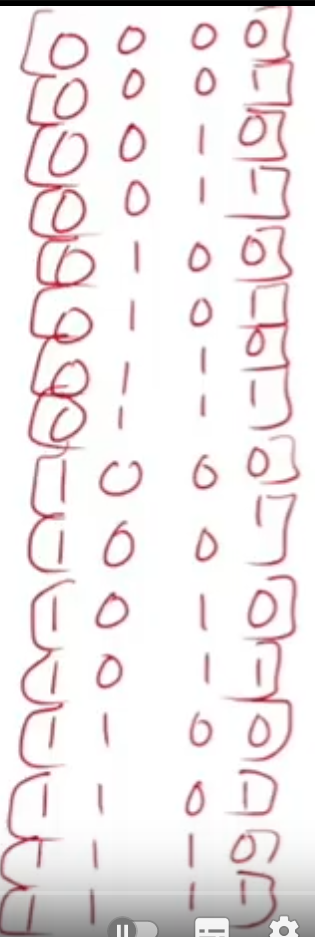 [0 0 0 0]
[0 0 0 1]
[0 0 1 0]
[0 0 1 1]
[0 1 0 0]
[0 1 0 1]
[0 1 1 0]
[0 1 1 1]
[1 0 0 0]
[1 0 0 1]
[1 0 1 0]
[1 0 1 1]
[1 1 0 0]
[1 1 0 1]
[1 1 1 0]
[1 1 1 1]